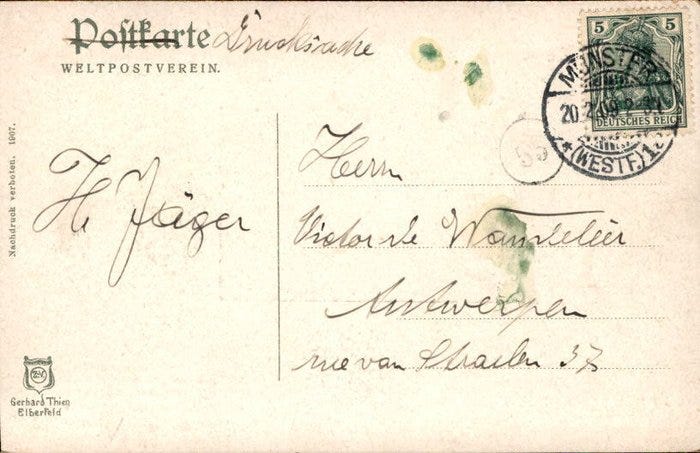 Postkarte Drucksache
WELTPOSTVEREIN.
5 5
DEUTSCHES REICH
MÜNSTER
20.2.09.2-3N.
*(WESTF.)1
Nachdruck verboten. 1907.
H. Jäger
Herrn
Victor de
Antwerpen
rue van Straelen 37
Gerhard Thien
Elberfeld